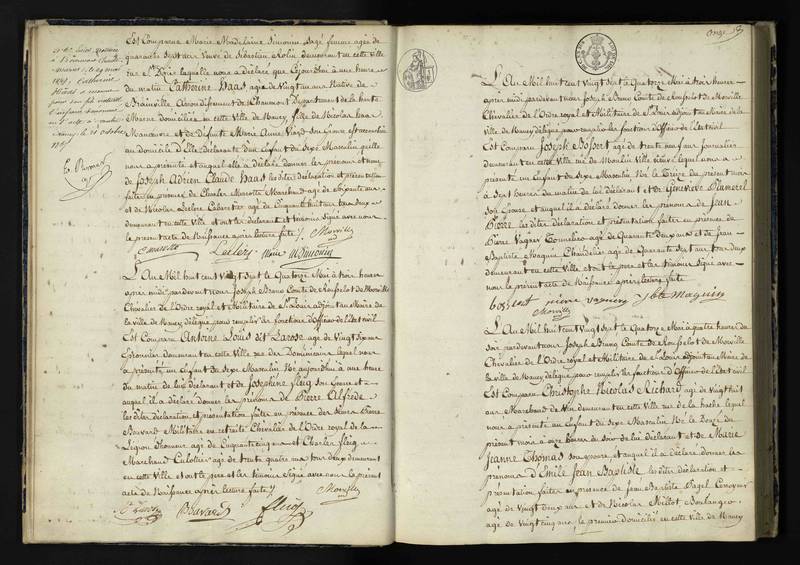 Est Comparue Marie Madelaine Simonin Sage femme agée de
quarante Sept ans Veuve de Sébastien Rolin demeurant en cette ville
rue St Dizier laquelle nous a déclaré que Cejourdhui à une heure
du matin Catherine Haas agée de Vingt un ans Native de
Blainville Arrondissement de Chaumont Département de la haute
Marne domiciliée en cette Ville de Nancy, fille de Nicolas haas
Manœuvre et de défunte Marie Anne son Epouse est accouchée
au domicile d'Elle déclarante d'un Enfant du Sexe Masculin quelle
nous a présenté et auquel elle a déclaré donner les prénoms et nom
de Joseph Adrien Claude Haas les dites déclaration et présentation
faites en présence de Charles Marotte Marchand agé de Soixante ans
et de Nicolas Leclerc Cabaretier agé de Cinquante huit ans tous deux
demeurant en cette Ville et ont les déclarant et témoins Signé avec nous
le présent acte de Naissance après lecture faite
C marotte Leclerc Morville
L'An Mil huit cent Vingt Sept le Quatorze Mai à trois heures
après midi pardevant nous Joseph Bruno Comte de Rousselot de Morville
Chevalier de l'Ordre royal et Militaire de St Louis adjoint au Maire de
la ville de Nancy délégué pour remplir les fonctions d'Officier de l'état civil
Est Comparu Antoine Louis dit Larose agé de Vingt Six ans
demeurant en cette Ville rue des Dominicains lequel nous
a présenté un Enfant du Sexe Masculin Né aujourdhui à une heure
du matin de lui déclarant et de Josephine flieg son Epouse et
auquel il a déclaré donner les prénoms de Pierre Alfred
les dites déclaration et présentation faites en présence des Sieurs Pierre
Bouvard Militaire en retraite Chevalier de l'Ordre royal de la
Légion d'honneur agé de Cinquante cinq ans et Charles flieg
Marchand Culottier agé de trente quatre ans tous deux demeurant
en cette Ville et ont le père et les témoins Signé avec nous le présent
acte de Naissance après lecture faite
Bouvard flieg Morville
Onze
L'An Mil huit cent Vingt Sept le Quatorze Mai à trois heures
après midi pardevant nous Joseph Bruno Comte de Rousselot de Morville
Chevalier de l'Ordre royal et Militaire de St Louis adjoint au Maire de la
Ville de Nancy délégué pour remplir les fonctions d'Officier de l'état civil
Est Comparu Joseph agé de trente neuf ans Journalier
demeurant en cette Ville rue du Moulin Ville vieille lequel nous a
présenté un Enfant du Sexe Masculin Né le treize du présent mois
à Sept heures du matin de lui déclarant et de Geneviève
son Epouse et auquel il a déclaré donner les prénoms de Jean
Pierre les dites déclaration et présentation faites en présence de
Pierre Vagner Tonnelier agé de Quarante deux ans et de Jean
Baptiste Maguin Chandelier agé de Quarante Six ans tous deux
demeurant en cette Ville et ont le père et les témoins Signé avec
nous le présent acte de Naissance après lecture faite
pierre Maguin
Morville
L'An Mil huit cent Vingt Sept le Quatorze Mai à quatre heures du
soir pardevant nous Joseph Bruno Comte de Rousselot de Morville
Chevalier de l'Ordre royal et Militaire de St Louis adjoint au Maire de
la Ville de Nancy délégué pour remplir les fonctions d'Officier de l'Etat civil
Est Comparu Christophe Nicolas Richard agé de Vingt huit
ans Marchand de Vin demeurant en cette Ville rue de la hache lequel
nous a présenté un Enfant du Sexe Masculin Né le Douze du
présent mois à onze heures du Soir de lui déclarant et de Marie
Jeanne Thomas son épouse et auquel il a déclaré donner les
prénoms d'Emile Jean Baptiste les dites déclaration et
présentation faites en présence de Jean Baptiste Pagel Corroyeur
agé de Vingt deux ans et de Nicolas Millot Boulanger
agé de Vingt cinq ans, le premier domicilié en cette Ville de Nancy